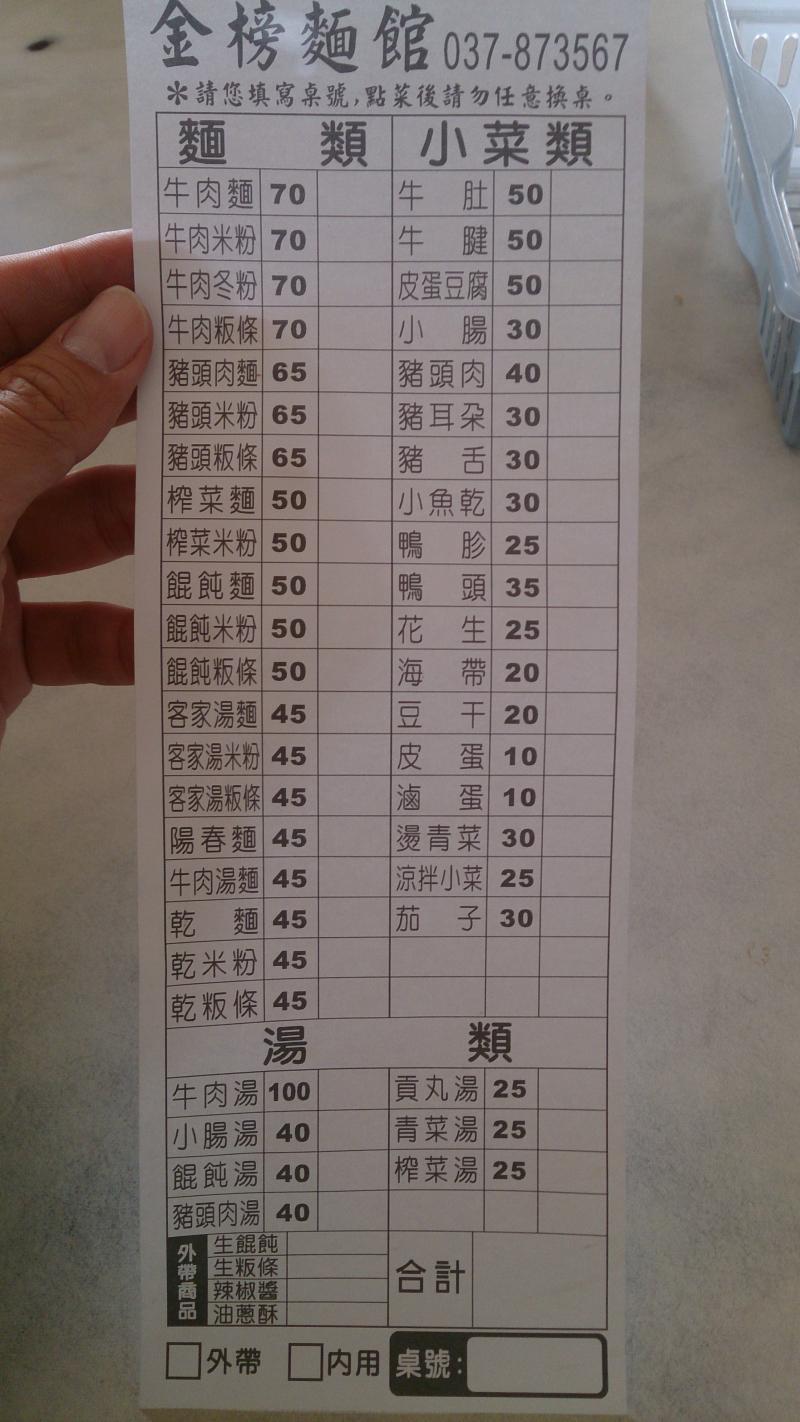 金榜麵館 037-873567
＊請您填寫桌號,點菜後請勿任意換桌。
麵類 小菜類
牛肉麵 70 牛肚 50
牛肉米粉 70 牛腱 50
牛肉冬粉 70 皮蛋豆腐 50
牛肉粄條 70 小腸 30
豬頭肉麵 65 豬頭肉 40
豬頭米粉 65 豬耳朵 30
豬頭粄條 65 豬舌 30
榨菜麵 50 小魚乾 30
榨菜米粉 50 鴨胗 25
餛飩麵 50 鴨頭 35
餛飩米粉 50 花生 25
餛飩粄條 50 海帶 20
客家湯麵 45 豆干 20
客家湯米粉 45 皮蛋 10
客家湯粄條 45 滷蛋 10
陽春麵 45 燙青菜 30
牛肉湯麵 45 涼拌小菜 25
乾麵 45 茄子 30
乾米粉 45
乾粄條 45
湯類
牛肉湯 100 貢丸湯 25
小腸湯 40 青菜湯 25
餛飩湯 40 榨菜湯 25
豬頭肉湯 40
外帶商品
生餛飩
生粄條
辣椒醬
油蔥酥
合計
外帶 內用 桌號: